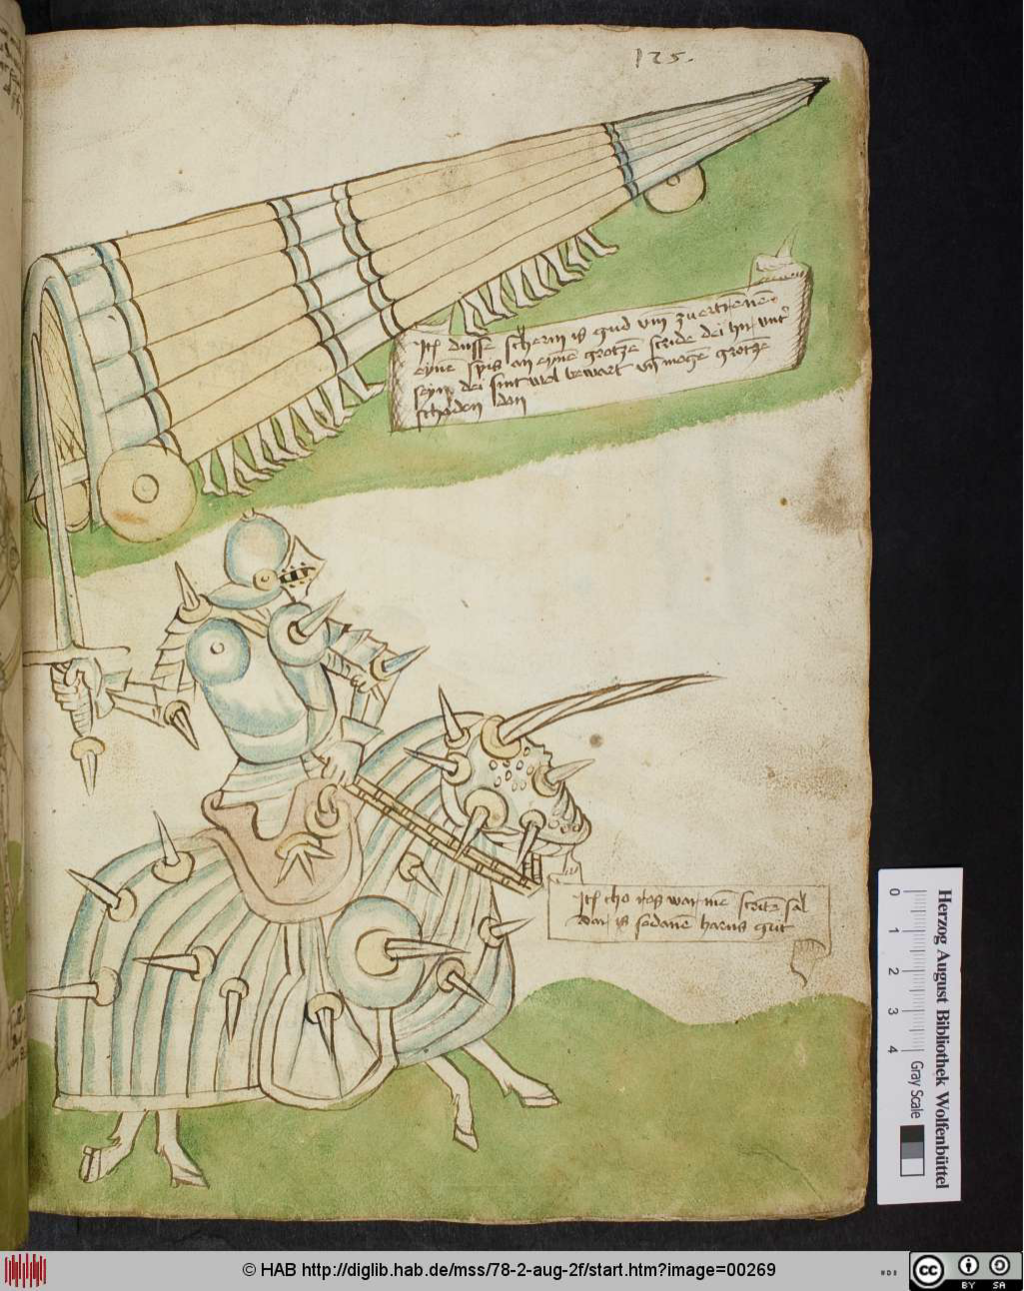 125.
Itē dusse scherm is gud vm̄ zuertrenē
eynē spis an eynē grotzē stride dei hir vnt̄
seyn dei sint wol bewart vn̄ mogē grotzē
schaden don
Itē tho ros war mē stritē sal
dar is sodanē harns gut
Herzog August Bibliothek Wolfenbüttel
0 1 2 3 4 Gray Scale
© HAB http://diglib.hab.de/mss/78-2-aug-2f/start.htm?image=00269
cc BY SA